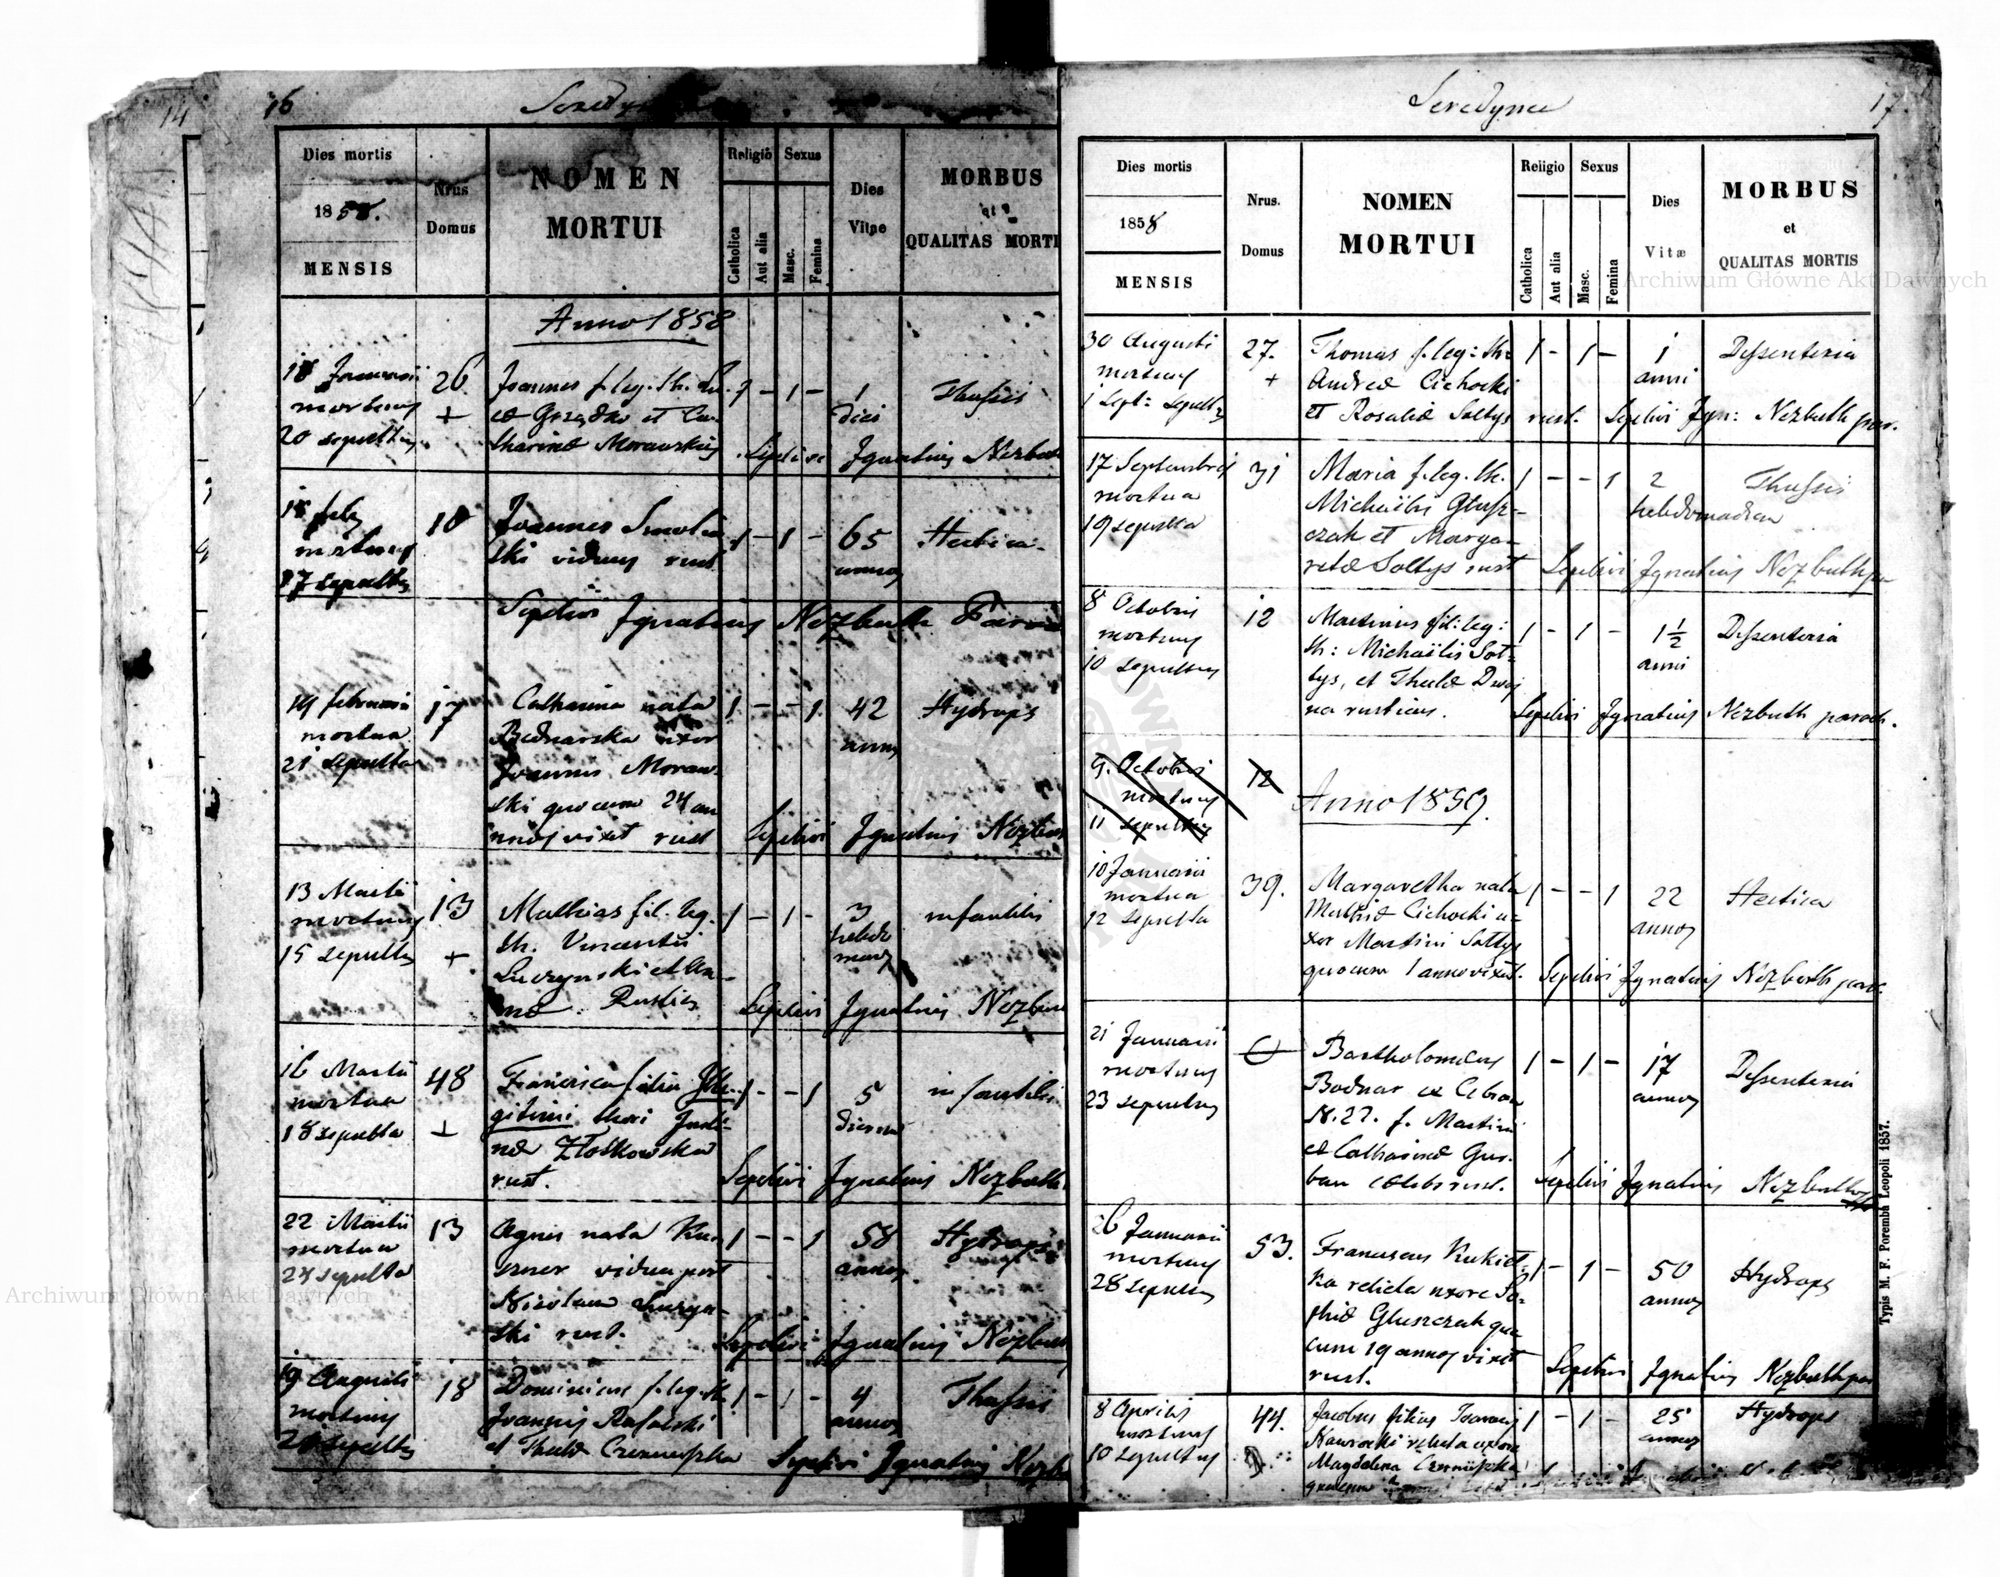 14
16
Dies mortis
1858.
MENSIS
Nrus
Domus
NOMEN
MORTUI
Religio
Catholica
Aut alia
Sexus
Masc.
Femina
Dies
Vitae
MORBUS
QUALITAS MORTI
Anno 1858
18 Januarii
mortuus
20 sepultus
26
+
Joannes f. leg. th. Lu-
et Catharinæ Morawski
1 - 1 -
1
diei
Thussis
Sepelivi Ignatius Nezbuth
18
mortuus
17 sepultus
10
Joannes Smolin
ski viduus rust
1 - 1 -
65
annos
Hectica
Sepelivi Ignatius Nezbuth Paro
19 februarii
mortua
21 sepulta
17
Catharina nata
Bednarska uxor
Joannis Moraw-
ski quocum 24 an
nos vixit rust
1 - - 1
42
annos
Hydrops
Sepelivi Ignatius Nezbu
13 Martii
mortuus
15 sepultus
13
+
Mathias fil. leg.
th. Vincentii
Luczynski et An-
næ Rustici
1 - 1 -
3
hebdo
madas
infantilis
Sepelivi Ignatius Nezbu
16 Martii
mortua
18 sepulta
48
Francisca filia Ille-
gitimi thori Justi-
næ Złotkowska
rust.
1 - - 1
5
dierum
infantilis
Sepelivi Ignatius Nezbuth
22 Martii
mortua
24 sepulta
13
Agnes nata Ku-
vidua post
Nicolaum Luczyn-
ski rust.
1 - - 1
58
annos
Hydrops
Sepelivi Ignatius Nezbuth
19 Augusti
mortuus
sepultus
18
Dominicus f. leg. th.
Joannis Rafalski
et Theclæ
1 - 1 -
4
annos
Thussis
Sepelivi Ignatius Nezbu
Seredynce
17.
Dies mortis
1858
MENSIS
Nrus.
Domus
NOMEN
MORTUI
Religio
Catholica
Aut alia
Sexus
Masc.
Femina
Dies
Vitæ
MORBUS
et
QUALITAS MORTIS
30 Augusti
mortuus
1 Sept: sepultus
27.
+
Thomas f. leg: th:
Andreæ Cichocki
et Rosaliæ Soltys rust.
1 - 1 -
1
anni
Dyssenteria
Sepelivi Ign: Nezbuth par.
17 Septembris
mortua
19 sepulta
31
Maria f. leg. th.
Michaëlis Głusz-
czak et Marga-
retæ Soltys rust
1 - - 1
2
hebdomadum
Thussis
Sepelivi Ignatius Nezbuth pa
8 Octobris
mortuus
10 sepultus
12
Martinus fil: leg:
th: Michaëlis Soł-
tys, et Theclæ Dwoj
na rusticus.
1 - 1 -
1½
anni
Dyssenteria
Sepelivi Ignatius Nezbuth paroch.
9. Octobris
mortuus
11 sepultus
12
Anno 1859.
10 Januarii
mortua
12 sepulta
39.
Margaretha nata
Cichocki u-
xor Martini Sołtys
quocum 1 anno vixit.
1 - - 1
22
annos
Hectica
Sepelivi Ignatius Nezbuth paroc.
21 Januarii
mortuus
23 sepultus
Bartholomæus
Bodnar ex Cebrow
N. 27. f. Martini
et Catharinæ Gur-
ban cœlebs rust.
1 - 1 -
17
annos
Dyssenteria
Sepelivi Ignatius Nezbuth
26 Januarii
mortuus
28 sepultus
53.
Franciscus Kukieł-
ka relicta uxore So-
phiæ Gluszczak qua
cum 19 annos vixit
rust.
1 - 1 -
50
annos
Hydrops
Sepelivi Ignatius Nezbuth par
8 Aprilis
mortuus
10 sepultus
44.
Jacobus filius Joannis
Nawrocki relicta uxore
Magdalena
1 - 1 -
25
annos
Hydrops
Typis M. F. Poremba Leopoli 1857.
Archiwum Główne Akt Dawnych
Archiwum Główne Akt Dawnych